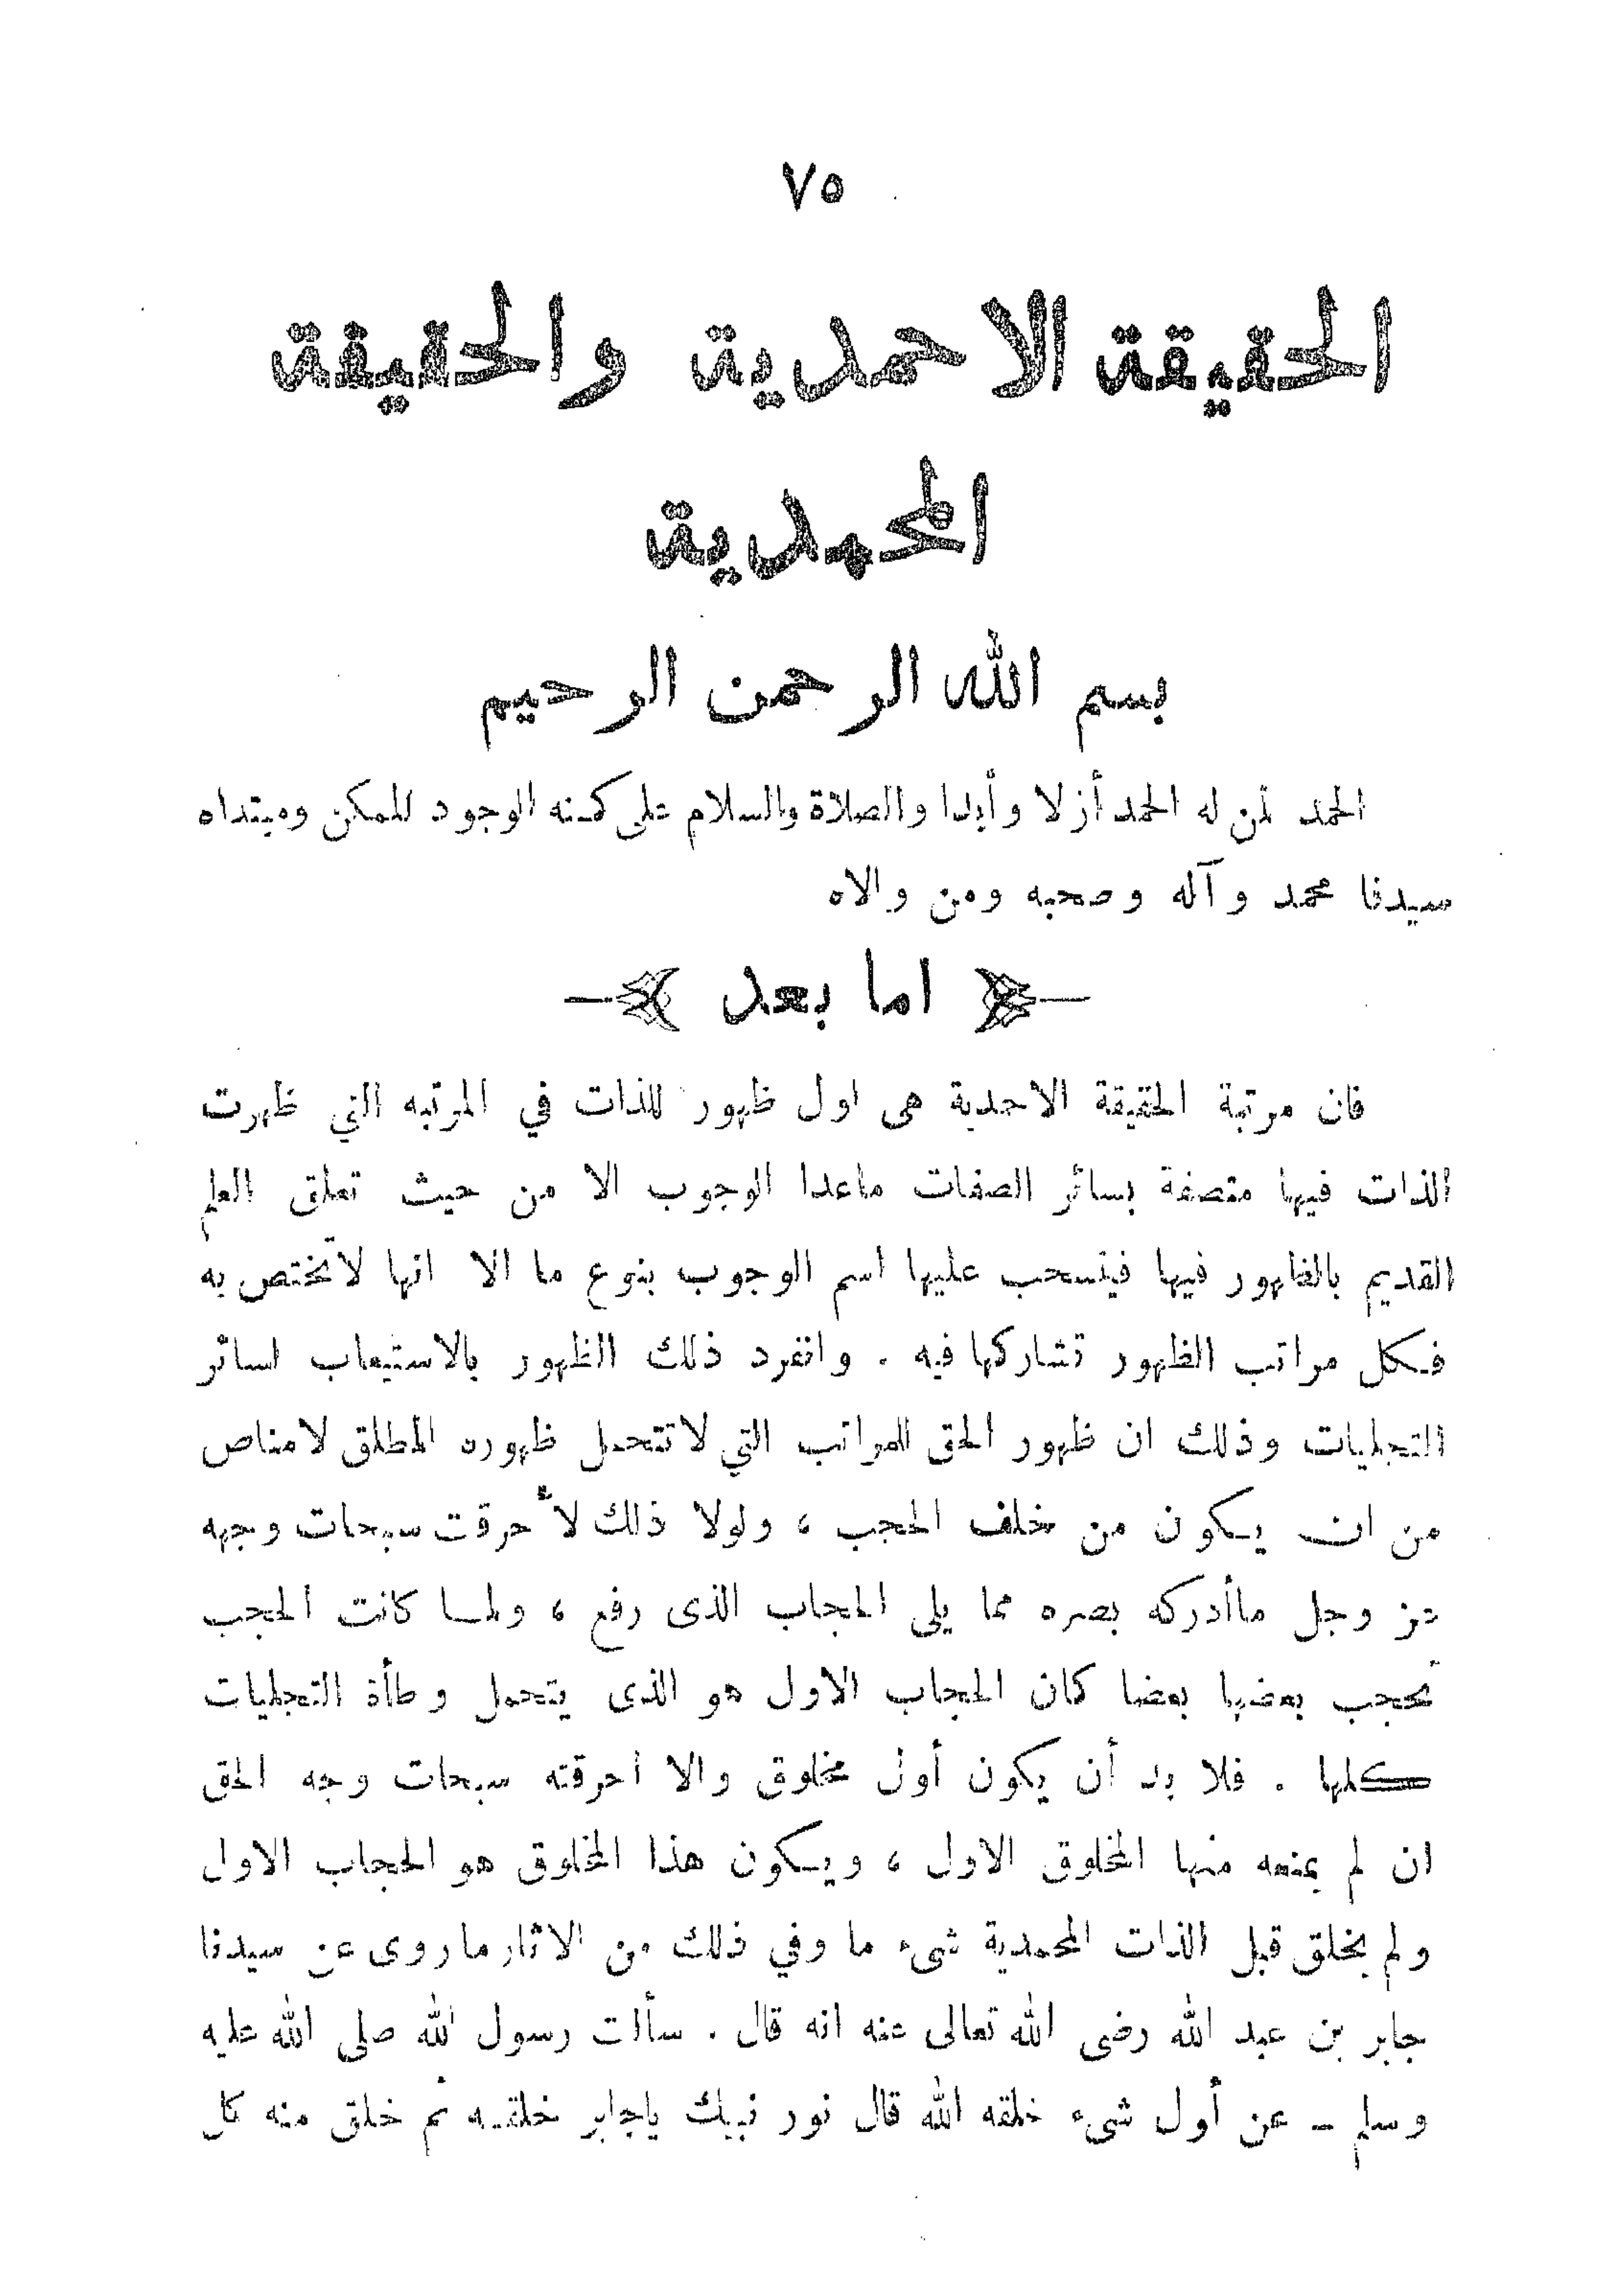 ٧٥
الحقيقة الاحمدية والحقيقة
المحمدية
بسم الله الرحمن الرحيم
الحمد لمن له الحمد أزلا وأبدا والصلاة والسلام على كنه الوجود للممكن ومبتداه
سيدنا محمد وآله وصحبه ومن والاه
اما بعد
فان مرتبة الحقيقة الاحمدية هى اول ظهور للذات في المرتبه التي ظهرت
الذات فيها متصفة بسائر الصفات ماعدا الوجوب الا من حيث تعلق العلم
القديم بالظهور فيها فينسحب عليها اسم الوجوب بنوع ما الا انها لاتختص به
فكل مراتب الظهور تشاركها فيه . وانفرد ذلك الظهور بالاستيعاب لسائر
التجليات وذلك ان ظهور الحق للمراتب التي لاتتحمل ظهوره المطلق لامناص
من ان يكون من خلف الحجب ، ولولا ذلك لأحرقت سبحات وجهه
عز وجل ماأدركه بصره مما يلى الحجاب الذى رفع ، ولما كانت الحجب
تحجب بعضها بعضا كان الحجاب الاول هو الذى يتحمل وطأة التجليات
كلها . فلا بد أن يكون أول مخلوق والا احرقته سبحات وجه الحق
ان لم يمنعه منها المخلوق الاول ، ويكون هذا المخلوق هو الحجاب الاول
ولم يخلق قبل الذات المحمدية شىء ما وفي ذلك من الاثار ماروى عن سيدنا
جابر بن عبد الله رضى الله تعالى عنه انه قال . سألت رسول الله صلى الله عليه
وسلم ـ عن أول شىء خلقه الله قال نور نبيك ياجابر خلقه ثم خلق منه كل